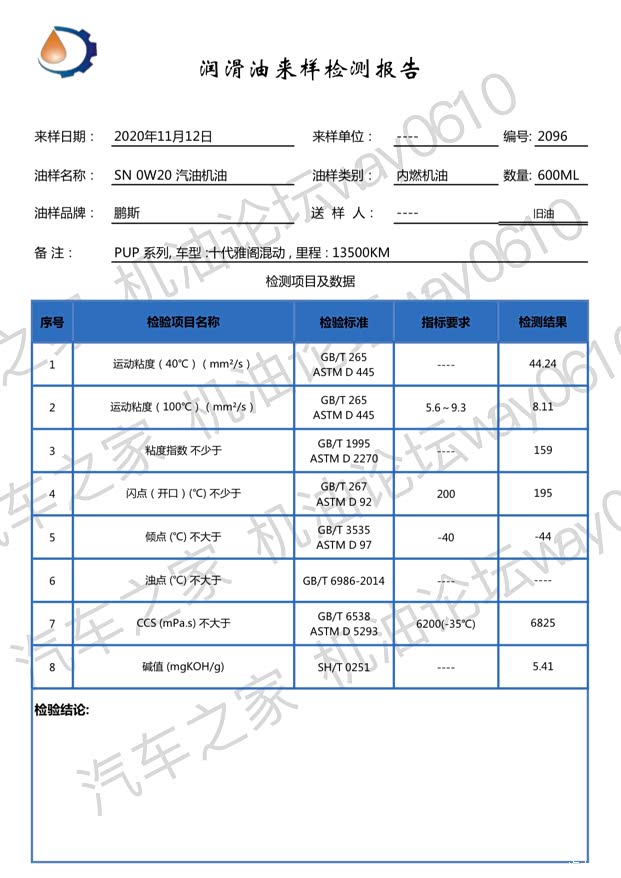 润滑油来样检测报告
来样日期： 2020年11月12日 来样单位： ---- 编号: 2096
油样名称： SN 0W20 汽油机油 油样类别： 内燃机油 数量: 600ML
油样品牌： 鹏斯 送 样 人： ---- 旧油
备 注： PUP 系列, 车型 :十代雅阁混动 , 里程 : 13500KM
检测项目及数据
序号 检验项目名称 检验标准 指标要求 检测结果
1 运动粘度 ( 40℃ ) ( mm²/s ) GB/T 265 ASTM D 445 ---- 44.24
2 运动粘度 ( 100℃ ) ( mm²/s ) GB/T 265 ASTM D 445 5.6 ~ 9.3 8.11
3 粘度指数 不少于 GB/T 1995 ASTM D 2270 ---- 159
4 闪点 ( 开口 ) (℃) 不少于 GB/T 267 ASTM D 92 200 195
5 倾点 (℃) 不大于 GB/T 3535 ASTM D 97 -40 -44
6 浊点 (℃) 不大于 GB/T 6986-2014 ---- ----
7 CCS (mPa.s) 不大于 GB/T 6538 ASTM D 5293 6200(-35℃) 6825
8 碱值 (mgKOH/g) SH/T 0251 ---- 5.41
检验结论:
汽车之家 机油论坛way0610
汽车之家 机油论坛way0610
汽车之家 机油论坛way0610
汽车之家 机油论坛way0